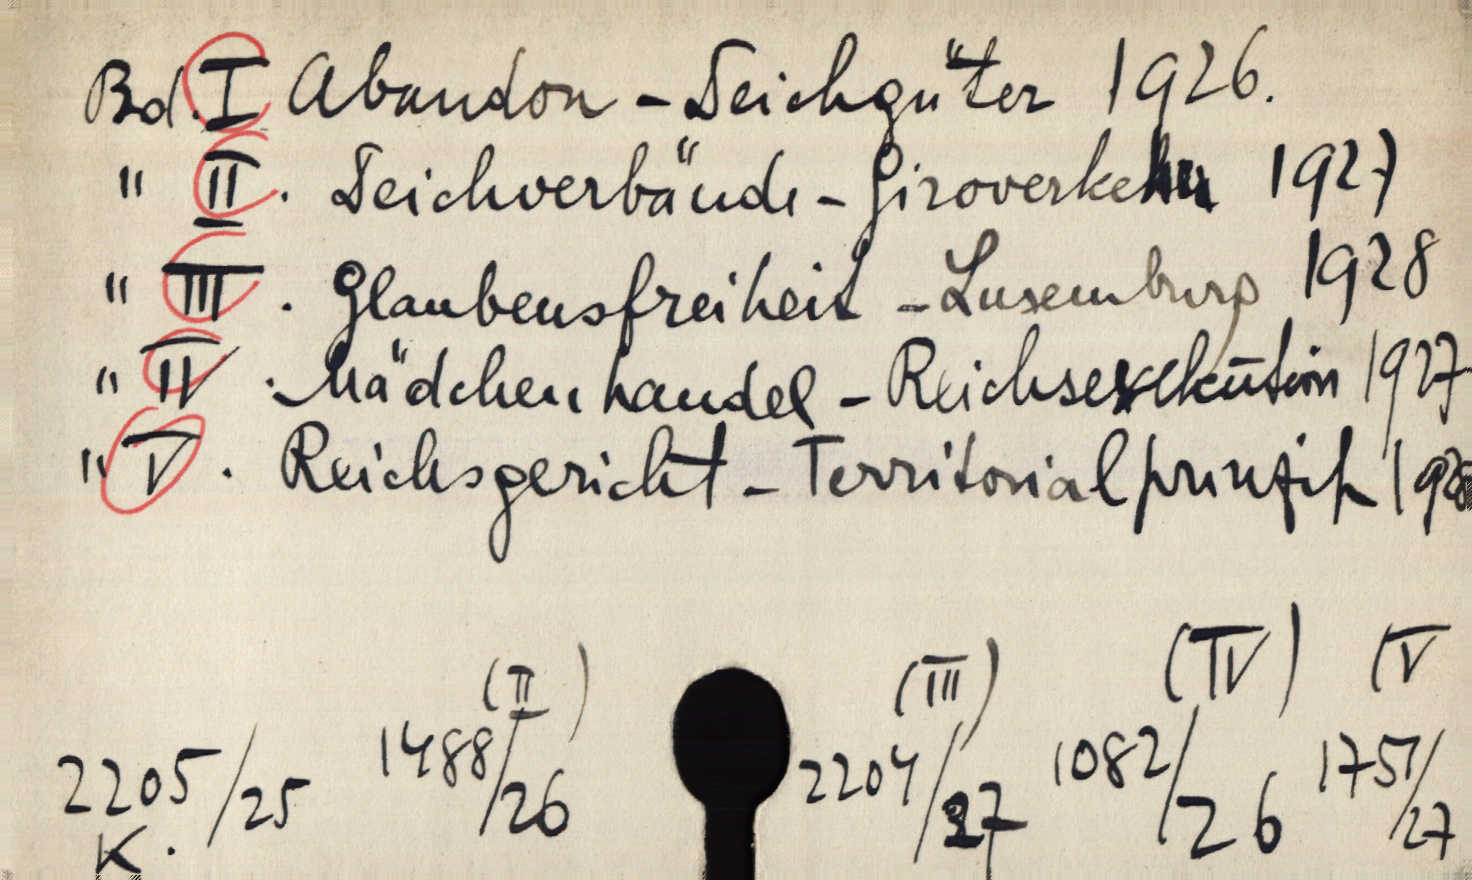 Bd. I Abandon - Deichgüter 1926.
" II. Deichverbände - Giroverkehr 1927
" III. Glaubensfreiheit - Luxemburg 1928
" IV. Mädchenhandel - Reichsexekution 1927
" V. Reichsgericht - Territorialprinzip 1928
(II) (III) (IV) (V
2205/25 1488/26 2204/27 1082/26 1757/27
K.